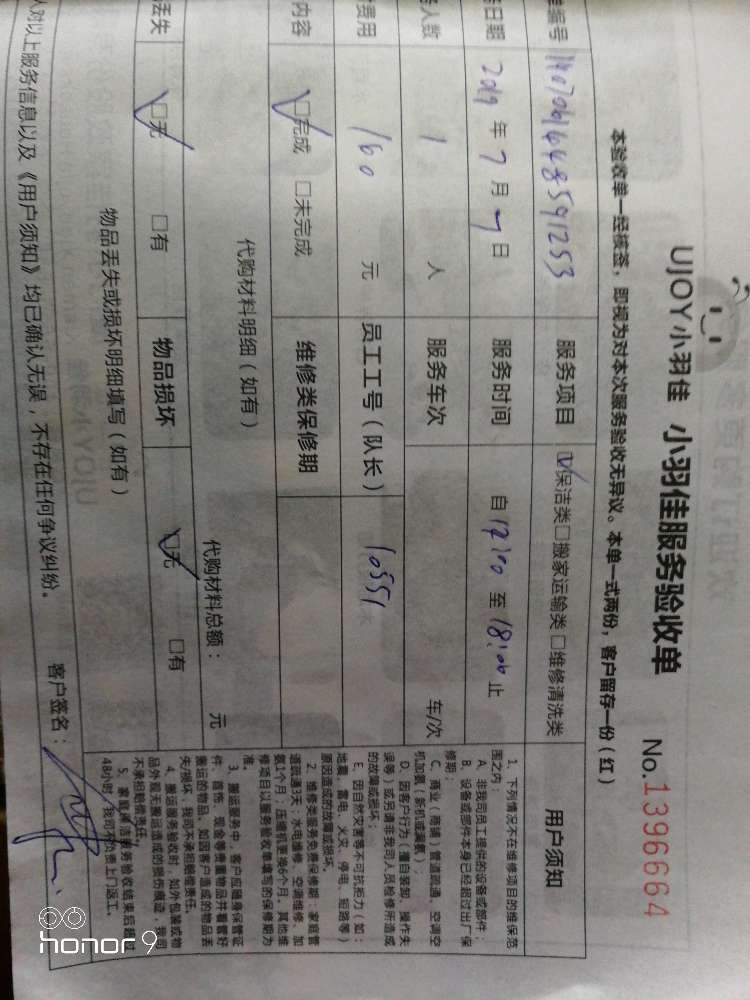 UJOY小羽佳 小羽佳服务验收单 No.1396664
本验收单一经核签，即视为对本次服务验收无异议。本单一式两份，客户留存一份（红）
编号 服务项目 ☑保洁类□搬家运输类□维修清洗类 用户须知
日期 2019 年 7 月 7 日 服务时间 自 17:00 至 18:00 止
人数 1 人 服务车次 车/次
费用 160 元 员工工号（队长） 10551
内容 ☑完成 □未完成 维修类保修期
代购材料明细（如有） 代购材料总额： 元
丢失 ☑无 □有 物品损坏 ☑无 □有
物品丢失或损坏明细填写（如有）
人对以上服务信息以及《用户须知》均已确认无误，不存在任何争议纠纷。 客户签名：
1、下列情况不在维修项目的维保范
围之内：
A、非我司员工提供的设备或部件；
B、设备或部件本身已经超过出厂保
修期；
C、商业（商铺）管道疏通、空调空
机加氨（新机或漏氨）；
D、因客户行为（擅自装卸、操作失
误等）或另请非我司人员检修所造成
的故障或损坏；
E、因自然灾害等不可抗拒力（如：
地震、雷电、火灾、停电、短路等）
原因造成的故障或损坏。
2、维修类服务免费保修期：家庭管
道疏通3天；水电维修、空调维修、加
氨1个月；压缩机更换6个月。其他维
修项目以服务验收单填写的保修期为
准。
3、搬运服务中，客户应随身保管证
件、首饰、现金等贵重物品并看管好
搬运的物品，如因客户造成的物品丢
失/损坏，我司不承担赔偿责任。
4、搬运服务验收时，如外包装或物
品外观无搬运造成的损伤痕迹，我司
不承担赔偿责任。
5、家庭保洁服务验收结束后超过
48小时，我司不负责上门返工。
honor 9